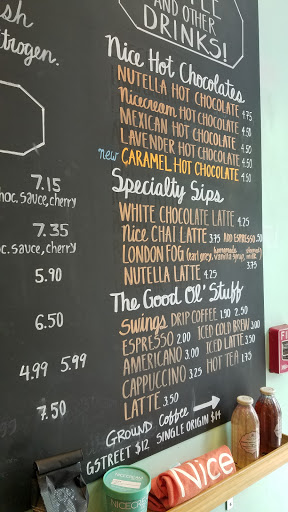 AND OTHER
DRINKS!
sh
itrogen.
Nice Hot Chocolates
NUTELLA HOT CHOCOLATE 4.75
Nicecream HOT CHOCOLATE 4.90
MEXICAN HOT CHOCOLATE 4.50
LAVENDER HOT CHOCOLATE 4.50
new CARAMEL HOT CHOCOLATE 4.50
Specialty Sips
WHITE CHOCOLATE LATTE 4.25
Nice CHAI LATTE 3.75 ADD ESPRESSO .50
LONDON FOG (earl grey, homemade vanilla syrup, steamed milk) 3.75
NUTELLA LATTE 4.25
The Good Ol' Stuff
Swings DRIP COFFEE 1.90 2.50
ESPRESSO 2.00 ICED COLD BREW 3.00
AMERICANO 3.00 ICED LATTE 3.50
CAPPUCCINO 3.25 HOT TEA 1.75
LATTE 3.50
GROUND COFFEE
G STREET $12 SINGLE ORIGIN $14
7.15
hoc. sauce, cherry
7.35
oc. sauce, cherry
5.90
6.50
4.99 5.99
7.50
NICECRE
Nice
F